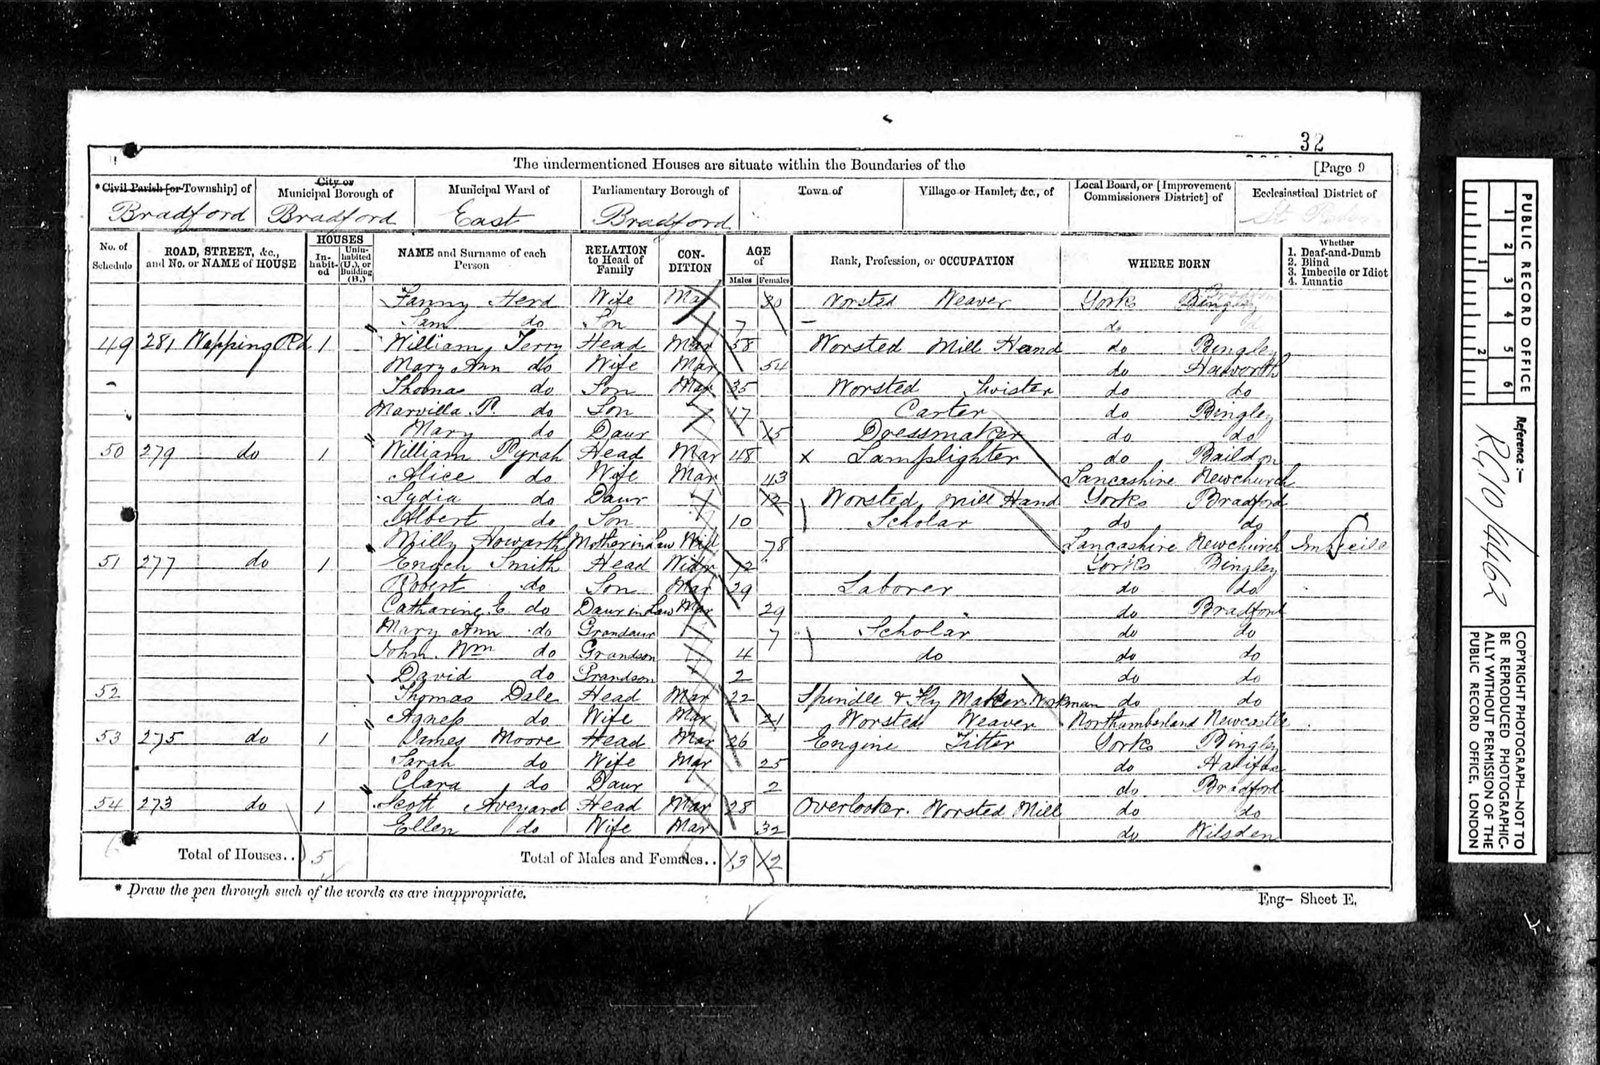 32
The undermentioned Houses are situate within the Boundaries of the [Page 9
* Civil Parish [or Township] of City or Municipal Borough of Municipal Ward of Parliamentary Borough of Town of Village or Hamlet, &c., of Local Board, or [Improvement Commissioners District] of Ecclesiastical District of
Bradford Bradford East Bradford St
No. of Schedule ROAD, STREET, &c., and No. or NAME of HOUSE HOUSES Inhabited Uninhabited (U.), or Building (B.) NAME and Surname of each Person RELATION to Head of Family CONDITION AGE of Males Females Rank, Profession, or OCCUPATION WHERE BORN Whether 1. Deaf-and-Dumb 2. Blind 3. Imbecile or Idiot 4. Lunatic
Fanny Herd Wife Mar 30 Worsted Weaver Yorks Bingley
Sam do Son 7 do
49 281 Wapping Rd 1 William Terry Head Mar 58 Worsted Mill Hand do Bingley
Mary Ann do Wife Mar 54 do Haworth
Thomas do Son Mar 35 Worsted Twister do do
Marvilla P. do Son 17 Carter do Bingley
Mary do Daur 15 Dressmaker do do
50 279 do 1 William Pyrah Head Mar 48 X Lamplighter do Baildon
Alice do Wife Mar 43 Lancashire Newchurch
Lydia do Daur 12 Worsted Mill Hand Yorks Bradford
Albert do Son 10 Scholar do do
Milly Howarth Mother in Law Wid 78 Lancashire Newchurch Imbecile
51 277 do 1 Enoch Smith Head Widr 72 Yorks Bingley
Robert do Son Mar 29 Laborer do do
Catharine E. do Daur in Law Mar 29 do Bradford
Mary Ann do Grandaur 7 Scholar do do
John Wm do Grandson 4 do do do
David do Grandson 2 do do
52 Thomas Dale Head Mar 22 Spindle & Fly Maker Workman do do
Agness do Wife Mar 21 Worsted Weaver Northumberland Newcastle
53 275 do 1 James Moore Head Mar 26 Engine Fitter Yorks Bingley
Sarah do Wife Mar 25 do Halifax
Clara do Daur 2 do Bradford
54 273 do 1 Scott Aveyard Head Mar 28 Overlooker. Worsted Mill do do
Ellen do Wife Mar 32 do Wilsden
Total of Houses.. 5 Total of Males and Females.. 13 12
* Draw the pen through such of the words as are inappropriate.
Eng- Sheet E.
PUBLIC RECORD OFFICE
1 2 3 4 5 6
1 2
Reference:-
RG10/4462
COPYRIGHT PHOTOGRAPH-NOT TO BE REPRODUCED PHOTOGRAPHICALLY WITHOUT PERMISSION OF THE PUBLIC RECORD OFFICE, LONDON